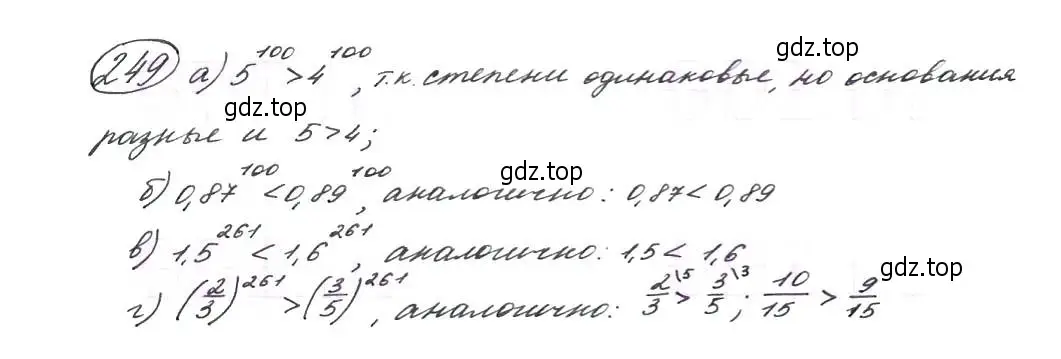 249 а) 5^100 > 4^100, т.к. степени одинаковые, но основания
разные и 5>4;
б) 0,87^100 < 0,89^100, аналогично: 0,87 < 0,89
в) 1,5^261 < 1,6^261, аналогично: 1,5 < 1,6
г) (2/3)^261 > (3/5)^261, аналогично: 2/3 \5 > 3/5 \3; 10/15 > 9/15
gdz.top
gdz.top
gdz.top
gdz.top
gdz.top